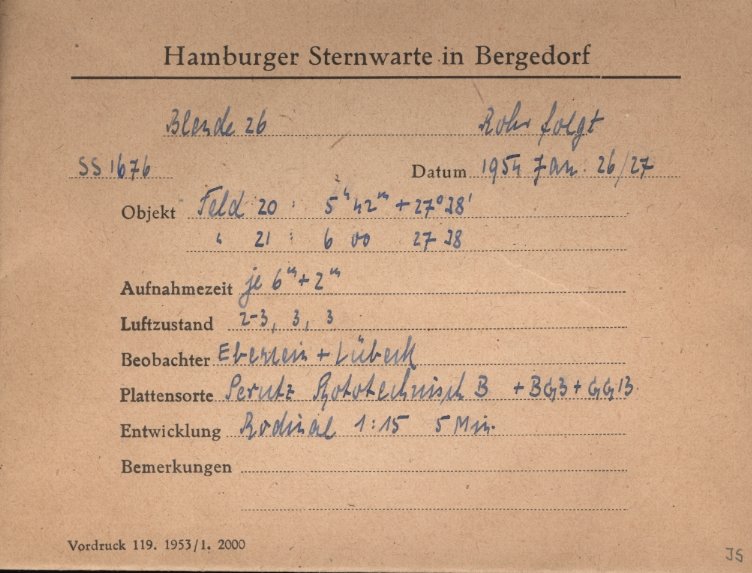 Hamburger Sternwarte in Bergedorf
Blende 26 Rohr folgt
SS 1676 Datum 1954 Jan. 26/27
Objekt Feld 20 : 5ʰ42ᵐ +27°28'
" 21 : 6 00 27 28
Aufnahmezeit je 6ᵐ+2ᵐ
Luftzustand 2-3, 3, 3
Beobachter + Lübeck
Plattensorte Perutz Phototechnisch B +BG3+GG13
Entwicklung Rodinal 1:15 5 Min.
Bemerkungen
Vordruck 119. 1953/1. 2000
JS